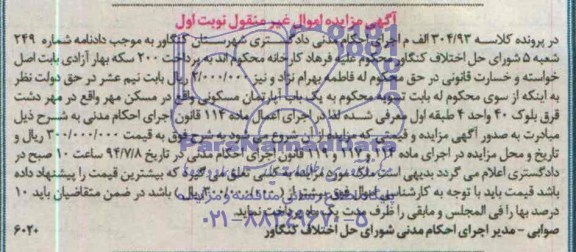 آگهی مزایده اموال غیر منقول نوبت اول
در پرونده کلاسه ۳۰۴/۹۳ الف م اجرای احکام مدنی دادگستری شهرستان کنگاور به موجب دادنامه شماره ۲۴۹
شعبه ۵ شورای حل اختلاف کنگاور محکوم علیه فرهاد کارخانه محکوم اند به پرداخت ۲۰۰ سکه بهار آزادی بابت اصل
خواسته و خسارت قانونی در حق محکوم له فاطمه بهرام نژاد و نیز ۲/۰۰۰/۰۰۰ ریال بابت نیم عشر در حق دولت نظر
به اینکه از سوی محکوم له بابت محکوم به یک باب آپارتمان مسکونی واقع در مسکن مهر واقع در مهر دشت
قرق بلوک ۴۰ واحد ۴ طبقه اول معرفی شده لذا در اجرای اعمال ماده ۱۱۴ قانون اجرای احکام مدنی به شرح ذیل
مبادرت به صدور آگهی مزایده و قیمتی که مزایده از آن شروع می شود به شرح فوق به قیمت ۳۰۰/۰۰۰/۰۰۰ ریال و
تاریخ و محل مزایده در اجرای ماده ۱۱۴ و ۱۱۷ و ۱۱۹ قانون اجرای احکام مدنی در تاریخ ۹۴/۷/۸ ساعت ۱۰ صبح در
دادگستری اعلام می گردد بدیهی است ملک مورد مزایده به کسی تعلق می گیرد که بیشترین قیمت را پیشنهاد داده
باشد قیمت باید با توجه به کارشناسی اموال فوق بیشتر از (۳۰۰/۰۰۰/۰۰۰ ریال) باشد در ضمن متقاضیان باید ۱۰
درصد بها را فی المجلس و مابقی را ظرف مدت یک ماه پرداخت نماید
صوابی - مدیر اجرای احکام مدنی شورای حل اختلاف کنگاور
۶۰۲۰
ParsNamadData
پایگاه اطلاع رسانی مناقصه و مزایده
۰۲۱-۸۸۳۴۹۶۷۰-۵